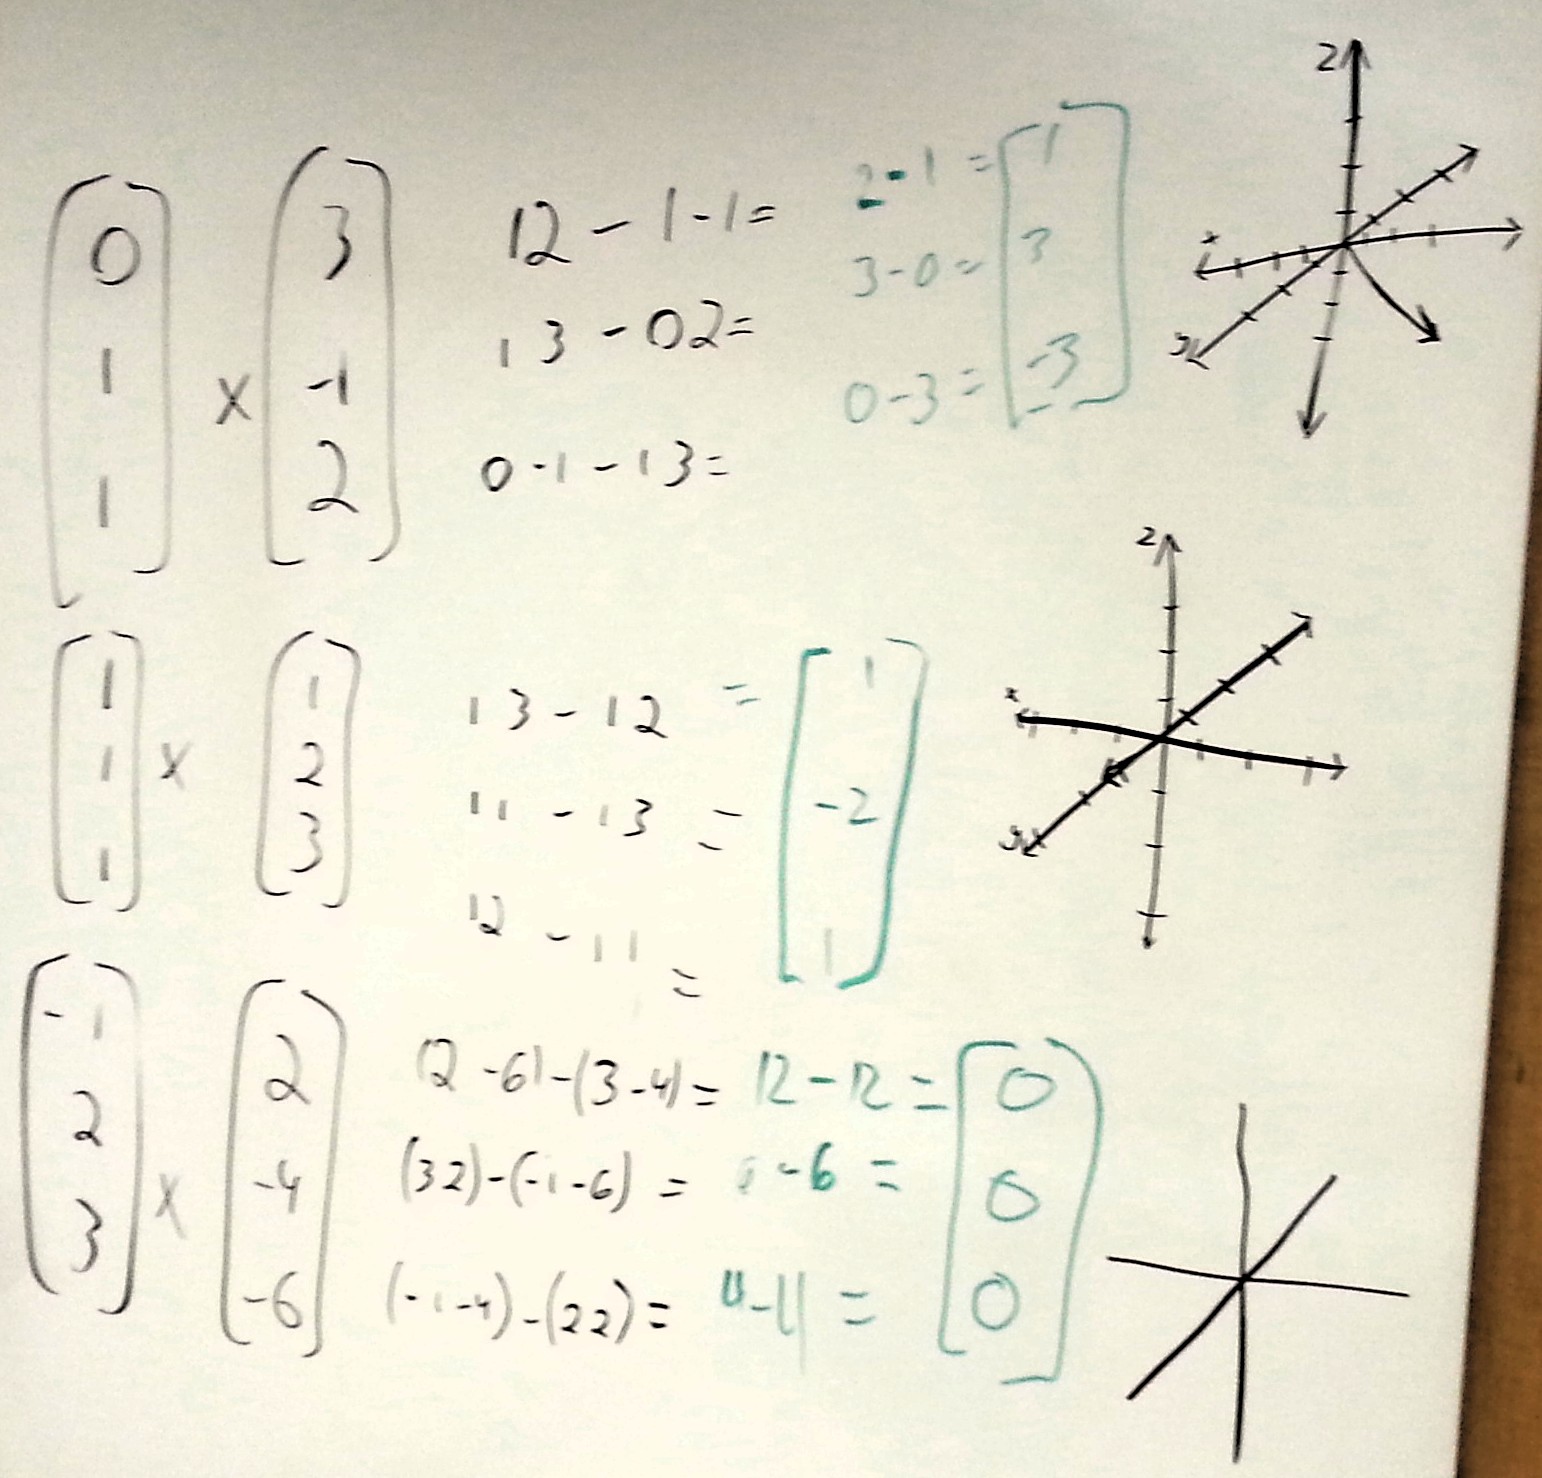 [0 1 1] x [3 -1 2]
12 - 1-1 = 2-1 = [1
13 - 02 = 3-0 = 3
0-1 - 13 = 0-3 = -3]
z
x
y
[1 1 1] x [1 2 3]
13 - 12 = [1
11 - 13 = -2
12 - 11 = 1]
z
x
y
[-1 2 3] x [2 -4 -6]
(2 -6) - (3 -4) = 12 - 12 = [0
(3 2) - (-1 -6) = -6 = 0
(-1 -4) - (2 2) = 4 - 4 = 0]